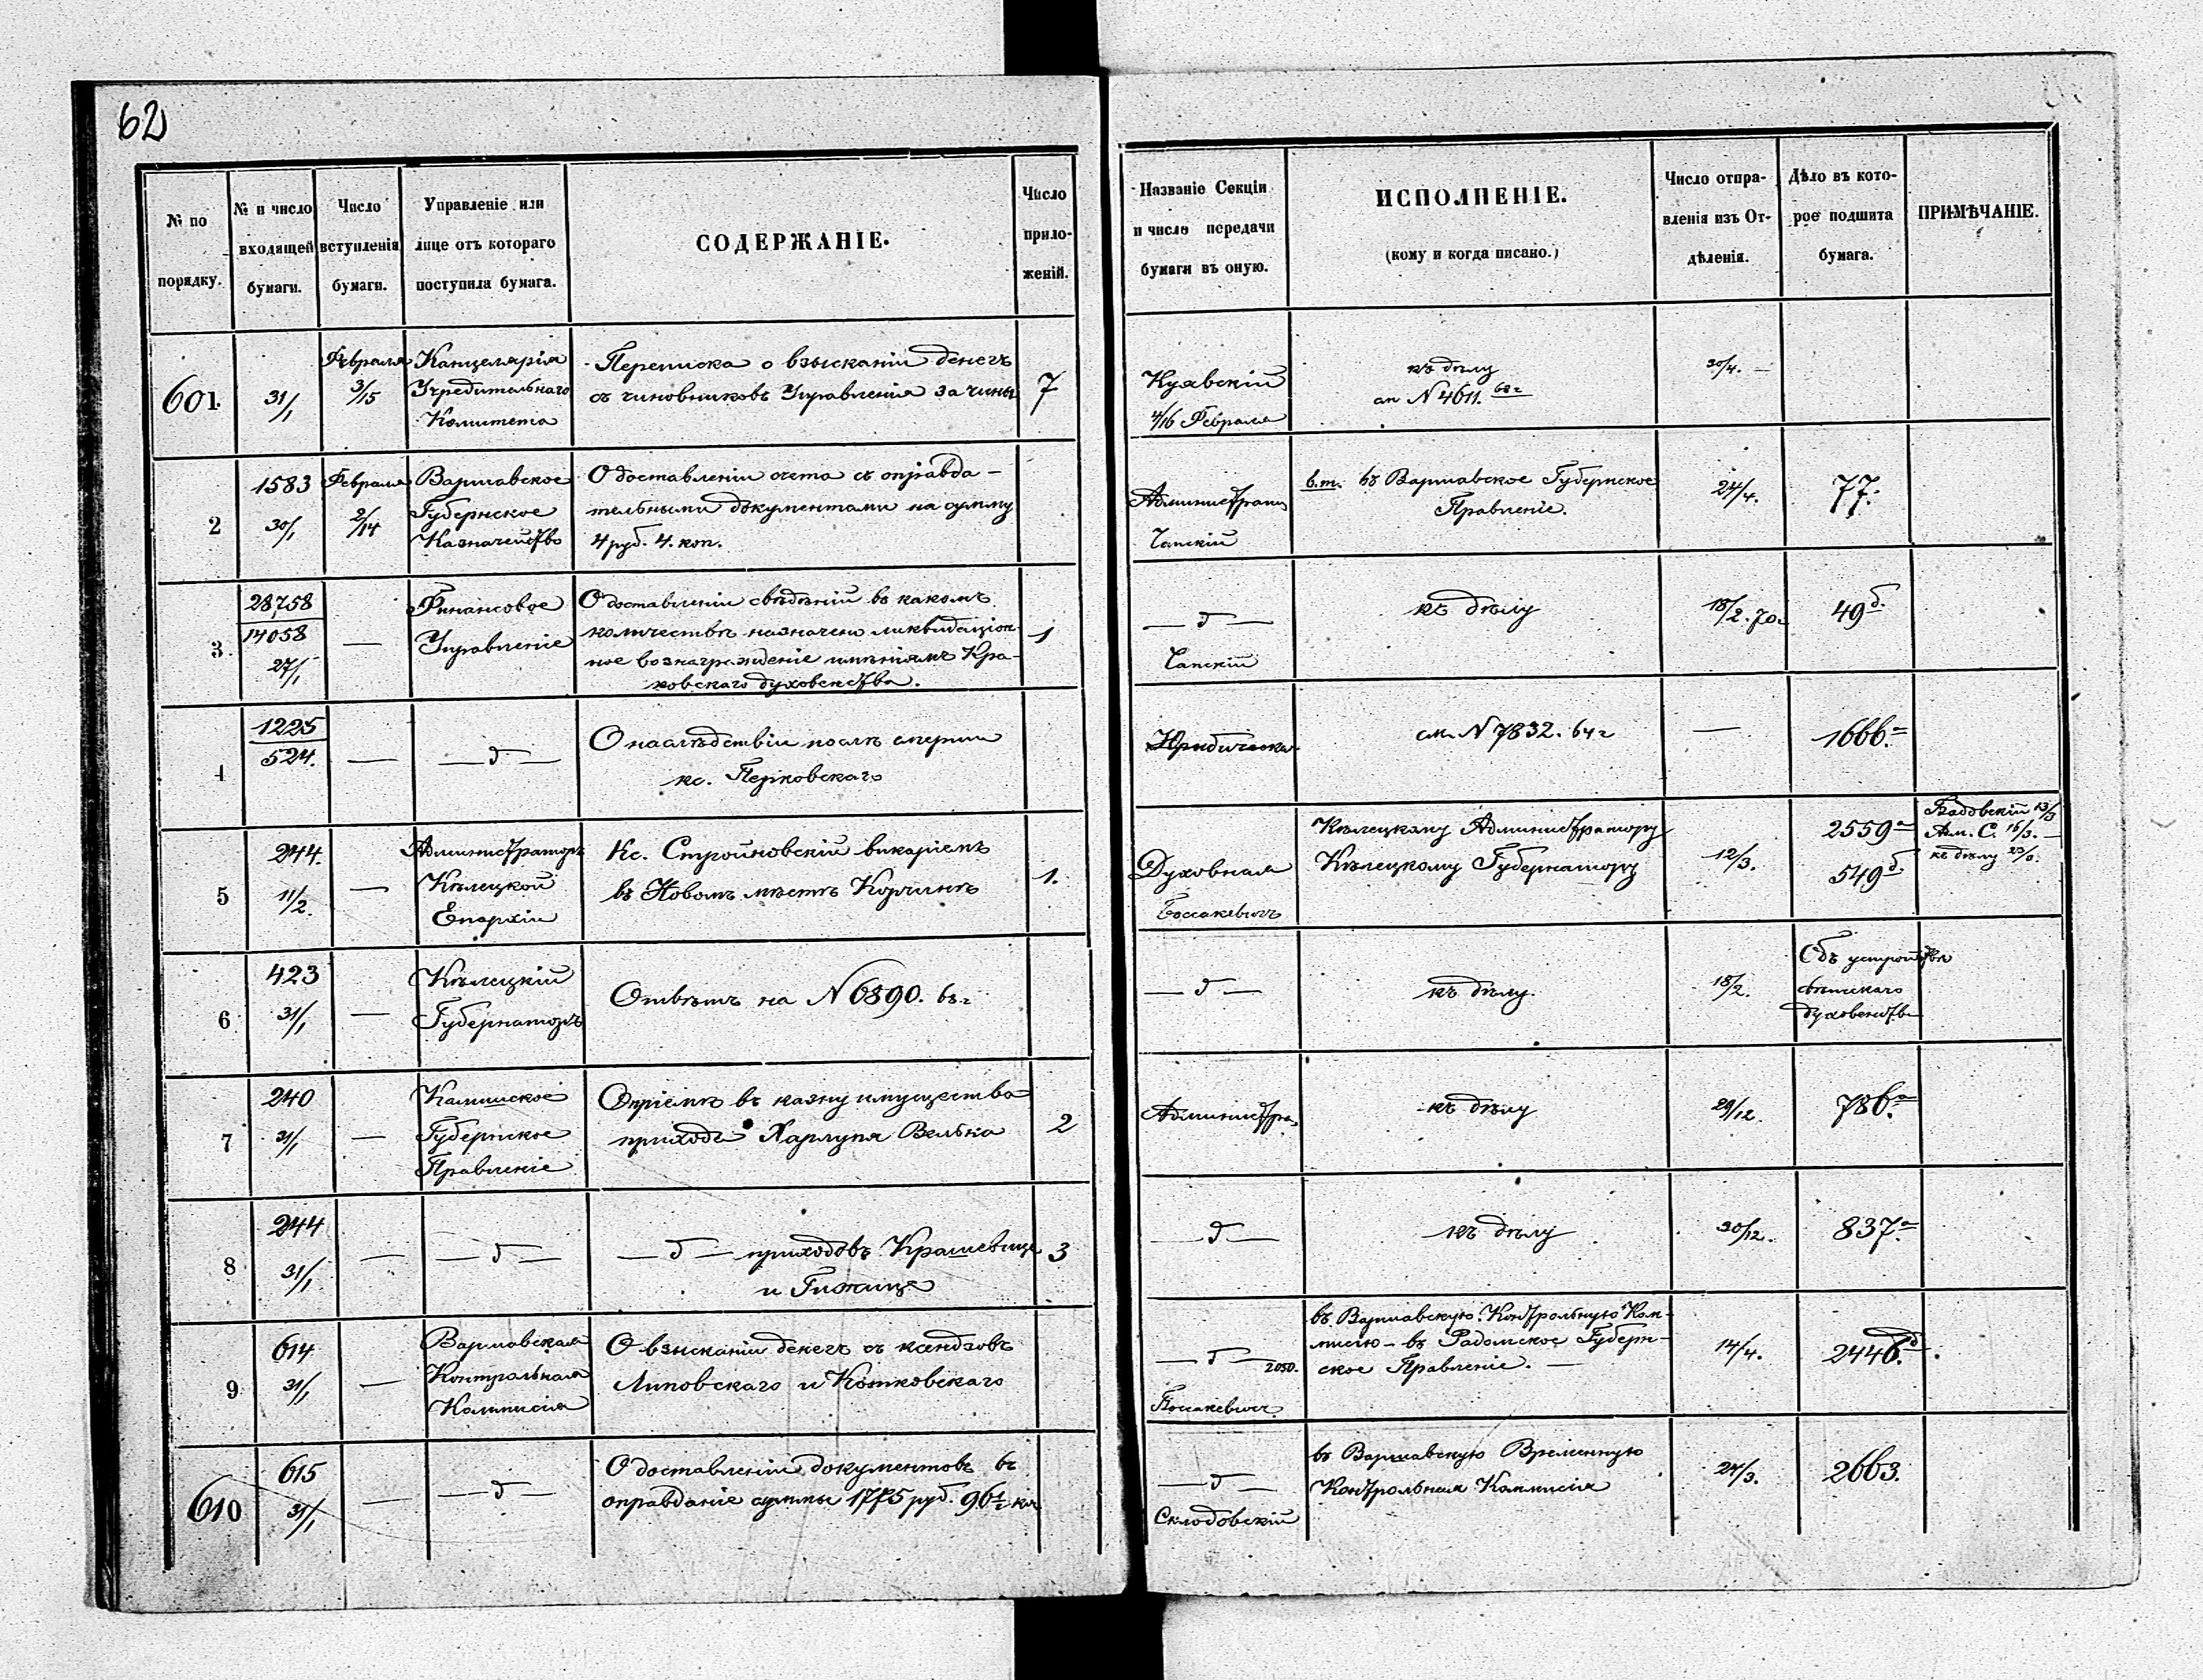 62
№ по порядку.
№ и число входящей бумаги.
Число вступленія бумаги.
Управленіе или лице отъ котораго поступила бумага.
СОДЕРЖАНІЕ.
Число прило-женій.
Названіе Секціи и число передачи бумаги въ оную.
ИСПОЛНЕНІЕ.
(кому и когда писано.)
Число отпра-вленія изъ От-дѣленія.
Дѣло въ кото-рое подшита бумага.
ПРИМѢЧАНІЕ.
601.
31/1
Февраля
3/15
Канцелярія
Учредительнаго
Комитета
Переписка о взысканіи денегъ
съ чиновниковъ Управленія за чины
7
Куявскій
4/16 Февраля
къ дѣлу
№ 4611. 68 г
30/4. —
2
1583
30/1
Февраля
2/14
Варшавское
Губернское
Казначейство
О доставленіи счета съ оправда-
тельными документами на сумму
4 руб. 4. коп.
Администрат
Чапскій
в.т. въ Варшавское Губернское
Правленіе.
24/4.
77.
3.
28758
14058
27/1
—
Финансовое
Управленіе
О доставленіи свѣдѣній въ какомъ
количествѣ назначено ликвидаціон-
ное вознагражденіе имѣніямъ Кра-
ковскаго духовенства.
1
— д —
Чапскій
къ дѣлу
18/2. 70.
49 б.
4
1225
524.
—
— д —
О наслѣдствіи послѣ смерти
кс. Перковскаго
Юридическа.
см. № 7832. 64 г
—
1666. а
5
244.
11/2.
—
Администраторъ
Кѣлецкой
Епархіи
Кс. Стройновскій викаріемъ
въ Новомъ мѣстѣ Корчинѣ
1.
Духовная
Боссакевичъ
Кѣлецкому Администратору
Кѣлецкому Губернатору
12/3.
2559 а
549 б.
13/3
Адм. С. 16/3. —
къ дѣлу
6
423
31/1
—
Кѣлецкій
Губернаторъ
Отвѣтъ на № 6890. 68 г
— д —
къ дѣлу.
18/2.
Объ устройствѣ
свѣтскаго
духовенства
7
240
31/1
—
Калишское
Губернское
Правленіе
О пріемѣ въ казну имущества
прихода Харлупя Велька
2
Администра.
къ дѣлу
29/12.
786. а
8
244
31/1
—
— д —
— д — приходовъ Крашевице
и Гижице
3
— д —
къ дѣлу
30/12.
837. а
9
614
31/1
—
Варшавская
Контрольная
Коммисія
О взысканіи денегъ съ ксендзовъ
Липовскаго и Котковскаго
— д — 2050.
Боссакевичъ
въ Варшавскую Контрольную Ком-
мисію — въ Радомское Губерн-
ское Правленіе. —
14/4.
2446. д
610
615
31/1
—
— д —
О доставленіи документовъ въ
оправданіе суммы 1775 руб. 96 1/2 коп
— д —
Склодовскій
въ Варшавскую Временную
Контрольная Коммисія
24/3.
2663.